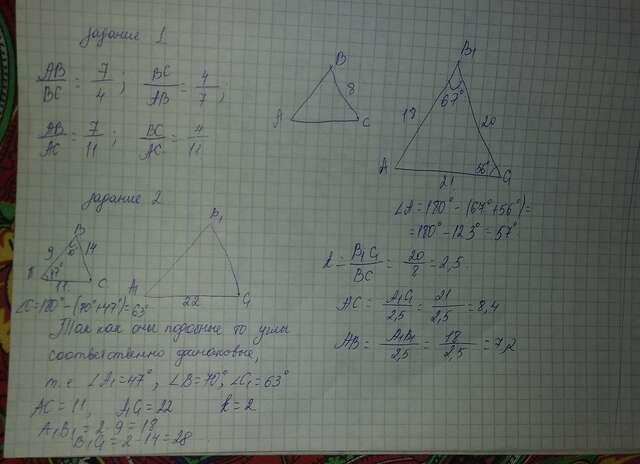 задание 1
AB/BC = 7/4 ; BC/AB = 4/7 ;
AB/AC = 7/11 ; BC/AC = 4/11
B
8
A
C
B₁
67°
18
20
A
56°
C₁
21
∠A = 180° - (67° + 56°) =
= 180° - 123° = 57°
k = B₁C₁/BC = 20/8 = 2,5
AC = A₁C₁/2,5 = 21/2,5 = 8,4
AB = A₁B₁/2,5 = 18/2,5 = 7,2
задание 2
B
9
14
47°
C
11
B₁
A₁
22
C₁
∠C = 180° - (70° + 47°) = 63°
Так как они подобные то углы
соответственно одинаковые,
т.е ∠A₁ = 47° ; ∠B = 70° ; ∠C₁ = 63°
AC = 11, A₁C₁ = 22 k = 2
A₁B₁ = 2·9 = 18
B₁C₁ = 2·14 = 28